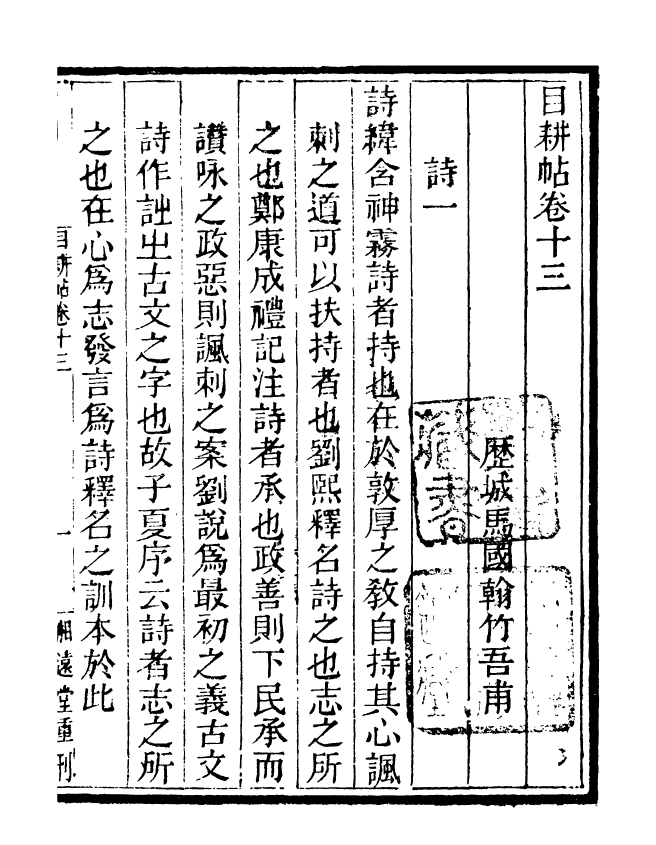 目耕帖卷十三
歷城馬國翰竹吾甫
詩一
詩緯含神霧詩者持也在於敦厚之教自持其心諷
刺之道可以扶持者也劉熙釋名詩之也志之所
之也鄭康成禮記注詩者承也政善則下民承而
讚咏之政惡則諷刺之案劉說爲最初之義古文
詩作䛈㞢古文之字也故子夏序云詩者志之所
之也在心爲志發言爲詩釋名之訓本於此
目耕帖卷十三
一
遠堂重刊